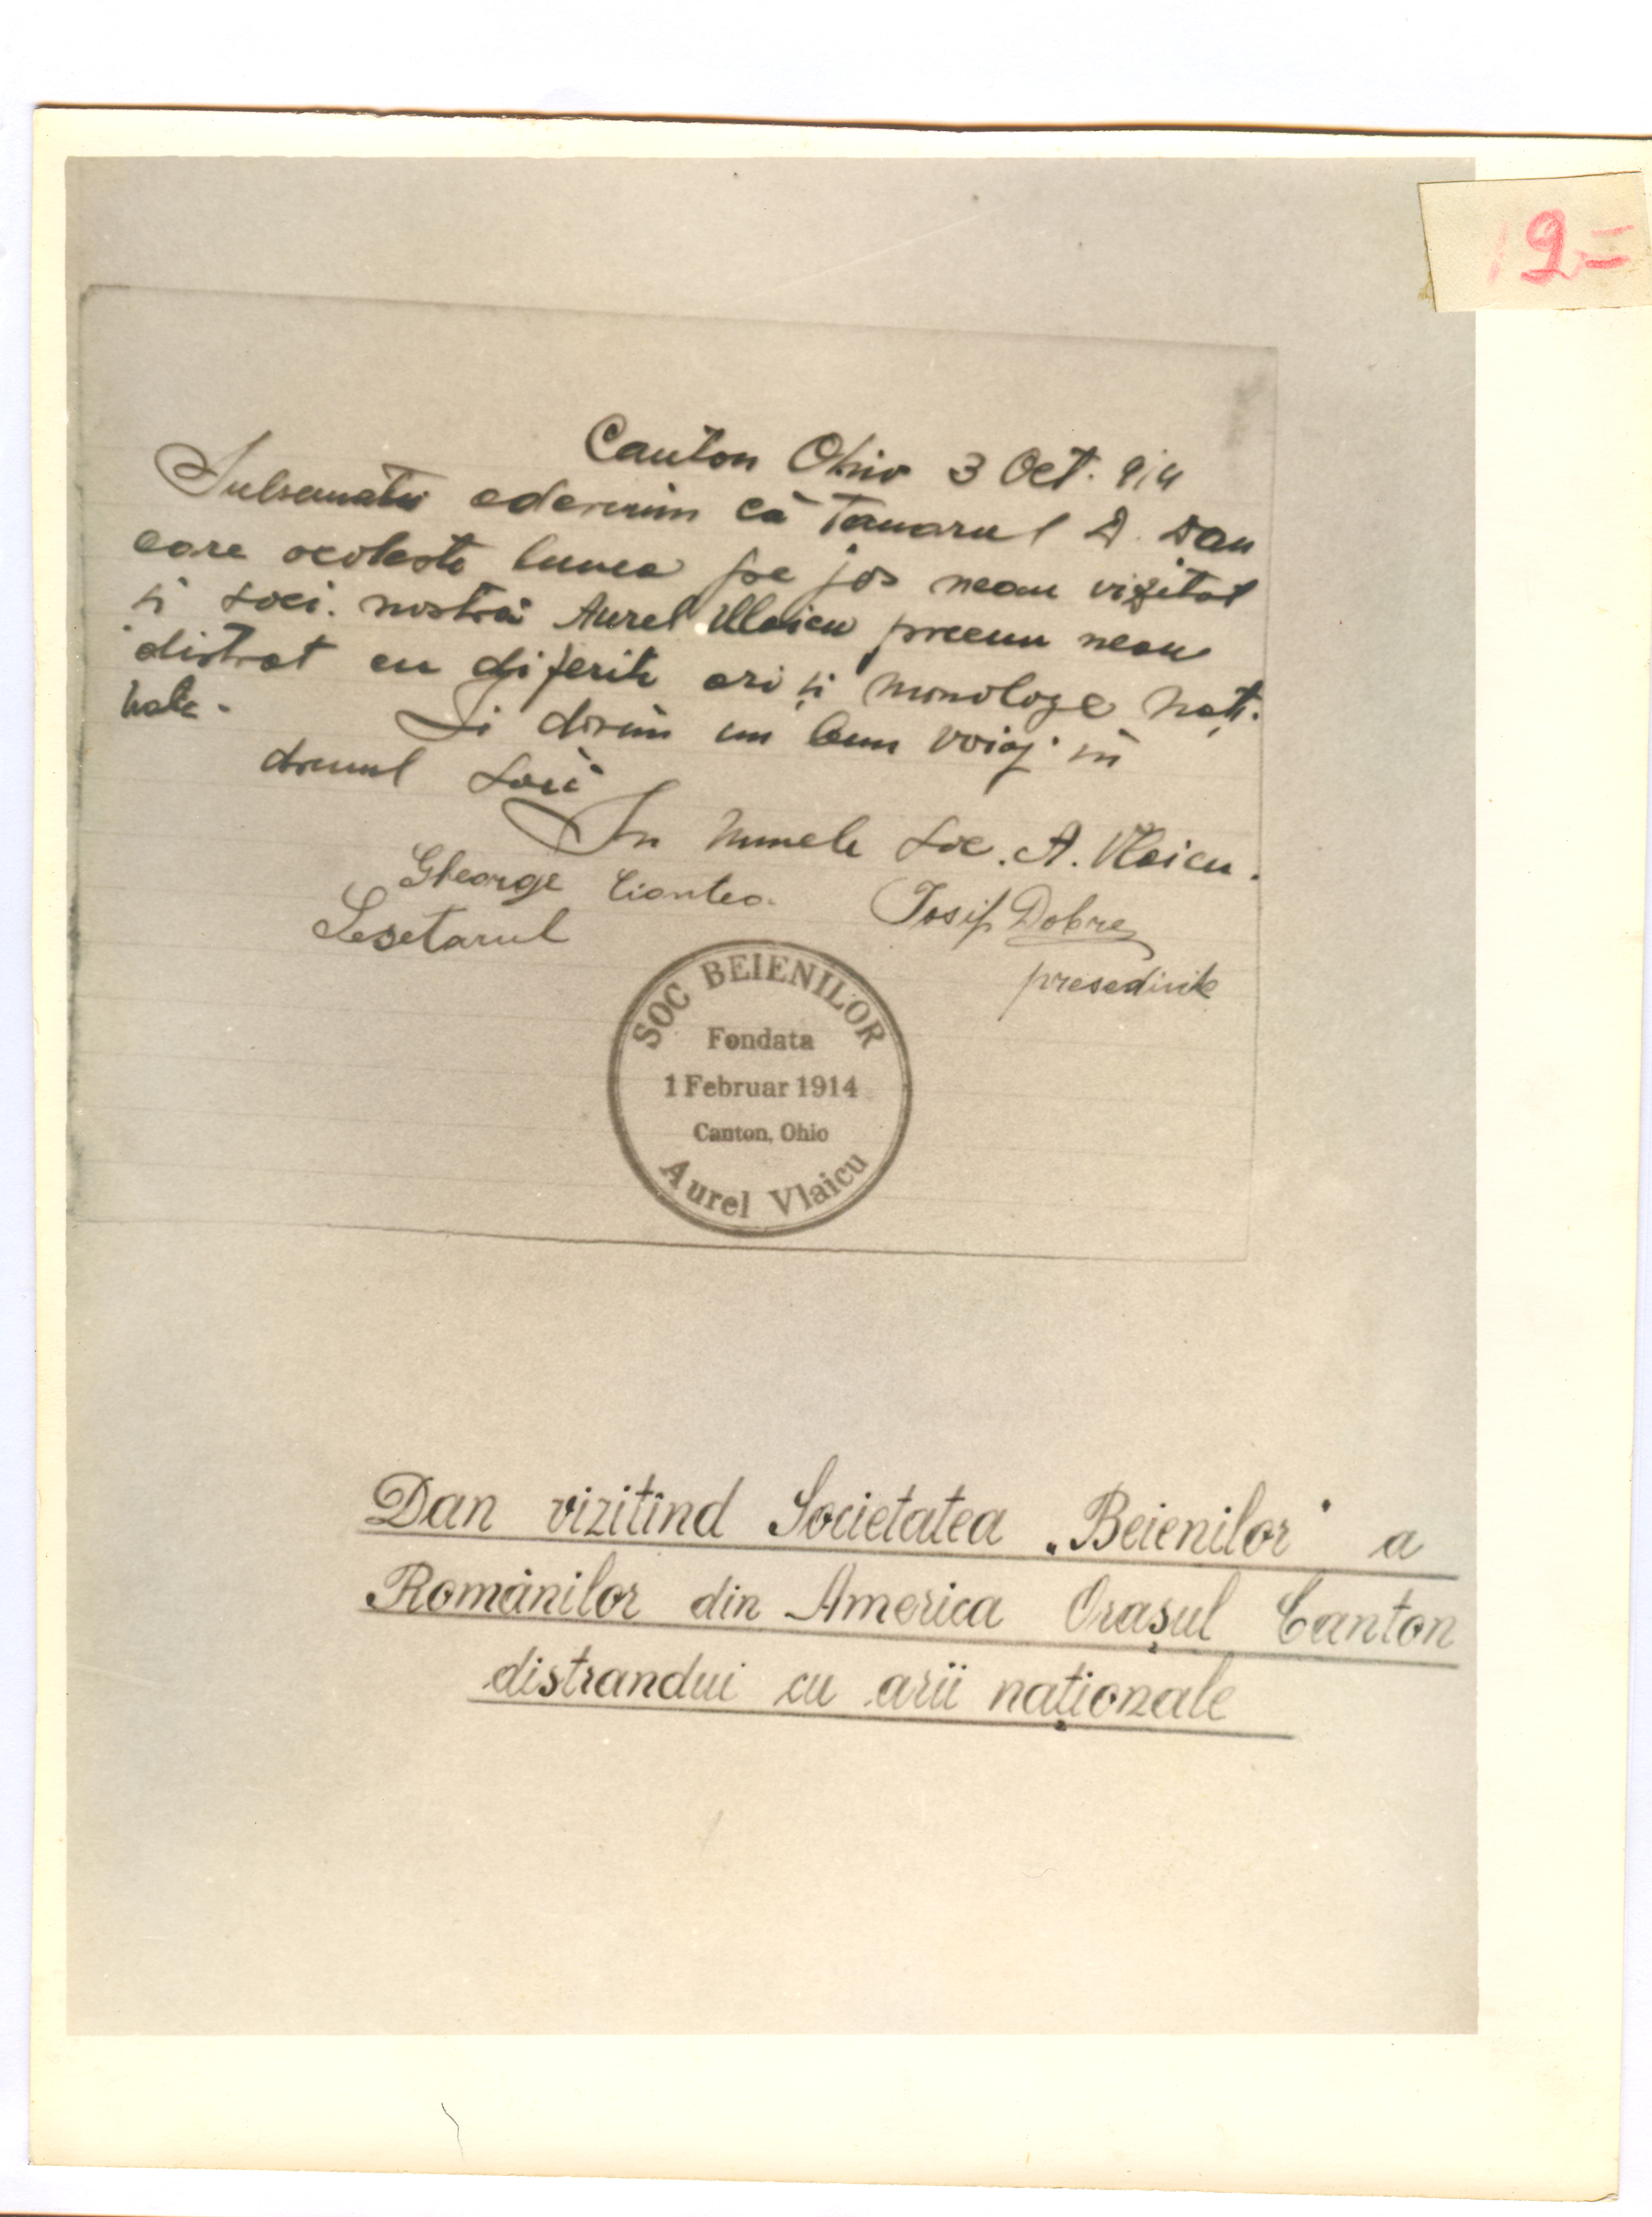 19=
Canton Ohio 3 Oct. 914
Subsemnatii aderim că Tanarul D. Dan
care ocoleste lumea pe jos neau vizitat
și soci. nostră Aurel Vlaicu precum neau
distrat cu diferite arii și monologe nați.
nale.
Ii dorim un bun voiaj in
drumul său
In numele soc. A. Vlaicu.
Gheorge Josif Dobre
presedinte
SOC BEIENILOR
Fondata
1 Februar 1914
Canton, Ohio
Aurel Vlaicu
Dan vizitînd Societatea „Beienilor" a
Românilor din America Orașul Canton
distrandui cu arii naționale